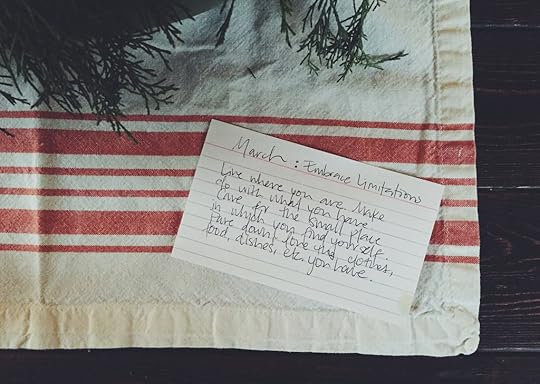 March : Embrace Limitations
Live where you are. Make
do with what you have.
Care for the small place
in which you find yourself.
Pare down, love the clothes,
food, dishes, etc. you have.